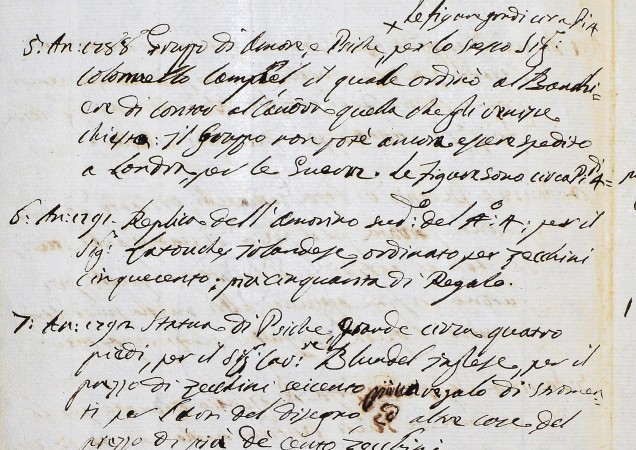 + Le figure grandi circa P. 4
5: An: 1788 Gruppo di Amore, e Psiche, per lo stesso Sig:
Colonnello Campbel, il quale ordinò al Banchi=
ere di contar al Canova quella che gli venisse
chiesta: il Gruppo non potè ancora essere spedito
a Londra, per le Guerre. Le figure sono circa Pi. 4=
6: An: 1791. Replica dell'Amorino sud.º del Nº: 4; per il
Sig: Latouche Irlandese, ordinato per Zecchini
cinquecento; più cinquanta di Regalo.
7: An: 1792 Statua di Psiche, grande circa quattro
piedi, per il Sig: Cav:re Blundel Inglese, per il
prezzo di Zecchini seicento, regalo di Stromen=
ti per l' del disegno, ed altre cose del
prezzo di più de cento Zecchini.